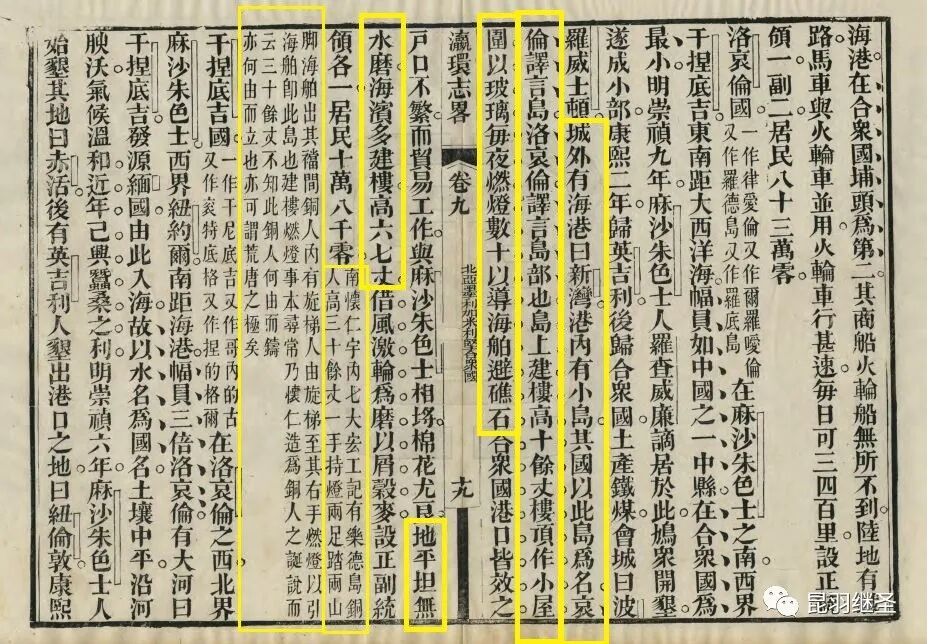 海港在合衆國埔頭爲第二其商船火輪船無所不到陸地有
路馬車與火輪車並用火輪車行甚速每日可三四百里設正
領一副二居民八十三萬零
洛哀倫國一作律愛倫又作爾羅噯倫又作羅德島又作羅底島在麻沙朱色士之南西界
干捏底吉東南距大西洋海幅員如中國之一中縣在合衆國爲
最小明崇禎九年麻沙朱色士人羅查威廉謫居於此鳩衆開墾
遂成小部康熙二年歸英吉利後歸合衆國土產鐵煤會城曰波
羅威士頓城外有海港曰新灣港內有小島其國以此島爲名哀
倫譯言島洛哀倫譯言島部也島上建樓高十餘丈樓頂作小屋
圍以玻璃每夜燃燈數十以導海舶避礁石合衆國港口皆效之
瀛環志畧 卷九 北亞墨利加米利堅合衆國 十九
戸口不繁而貿易工作與麻沙朱色士相埓棉花尤良地平坦無
水磨海濱多建樓高六七丈借風激輪爲磨以屑穀麥設正副統
領各一居民十萬八千零南懷仁宇內七大宏工記有樂德島銅人高三十餘丈一手持燈兩足踏兩山
脚海舶出其襠間銅人內有旋梯人由旋梯至其右手燃燈以引
海舶卽此島也建樓燃燈事本尋常乃懷仁造爲銅人之誕說而
云三十餘丈不知此銅人何由而鑄
亦何由而立也亦可謂荒唐之極矣
干捏底吉國一作干尼底吉又作哥內的古又作袞特底格又作捏的格爾在洛哀倫之西北界
麻沙朱色士西界紐約爾南距海港幅員三倍洛哀倫有大河曰
干捏底吉發源緬國由此入海故以水名爲國名土壤中平沿河
腴沃氣候溫和近年己興蠶桑之利明崇禎六年麻沙朱色士人
始墾其地曰赤活後有英吉利人墾出港口之地曰紐倫敦康熙
昆羽继圣